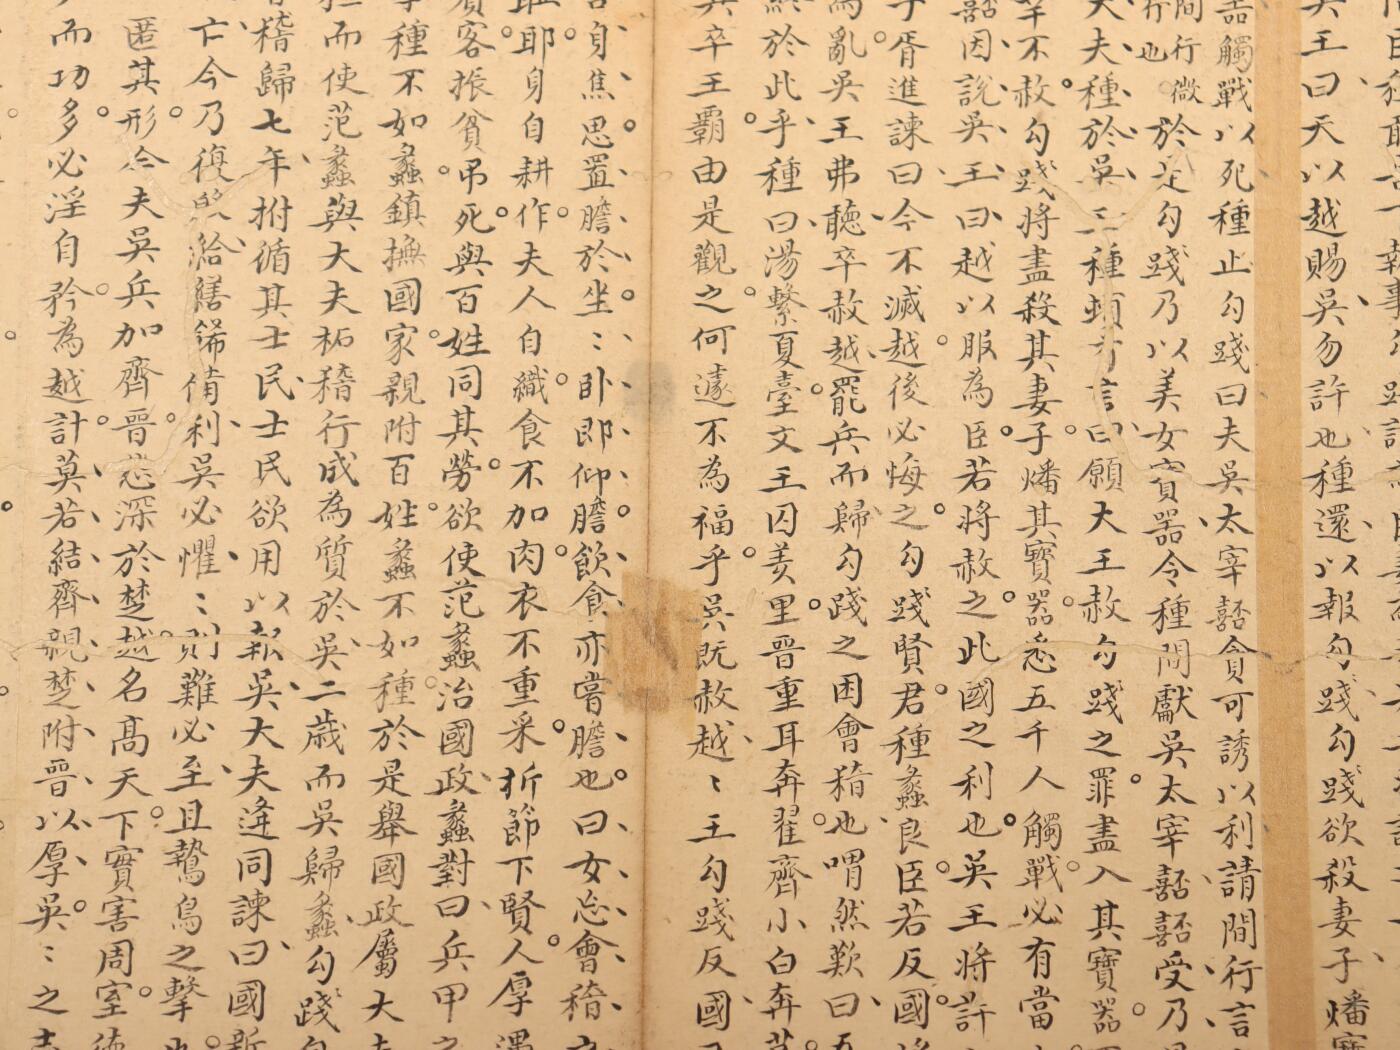 臣種敢告下執事勾踐請為臣妻為妾
吳王曰天以越賜吳勿許也種還以報勾踐勾踐欲殺妻子燔寶
器觸戰以死種止勾踐曰夫吳太宰嚭貪可誘以利請間行言
間行微行也
於是勾踐乃以美女寶器令種間獻吳太宰嚭嚭受乃見
大夫種於吳王種頓首言曰願大王赦勾踐之罪盡入其寶器
幸不赦勾踐將盡殺其妻子燔其寶器悉五千人觸戰必有當
嚭因說吳王曰越以服為臣若將赦之此國之利也吳王將許
子胥進諫曰今不滅越後必悔之勾踐賢君種蠡良臣若反國將
為亂吳王弗聽卒赦越罷兵而歸勾踐之困會稽也喟然歎曰吾
終於此乎種曰湯繫夏臺文王囚羑里晉重耳奔翟齊小白奔莒
其卒王霸由是觀之何遽不為福乎吳既赦越〻王勾踐反國
苦身焦思置膽於坐〻卧即仰膽飲食亦嘗膽也曰女忘會稽之
恥耶身自耕作夫人自織食不加肉衣不重采折節下賢人厚遇
賓客振貧吊死與百姓同其勞欲使范蠡治國政蠡對曰兵甲之
事種不如蠡鎮撫國家親附百姓蠡不如種於是舉國政屬大夫
種而使范蠡與大夫柘稽行成為質於吳二歲而吳歸蠡勾踐自
會稽歸七年拊循其士民士民欲用以報吳大夫逢同諫曰國新
亡今乃復殷給繕飾備利吳必懼〻則難必至且鷙鳥之擊也
匿其形今夫吳兵加齊晉怨深於楚越名髙天下實害周室德
而功多必淫自矜為越計莫若結齊親楚附晉以厚吳〻之志